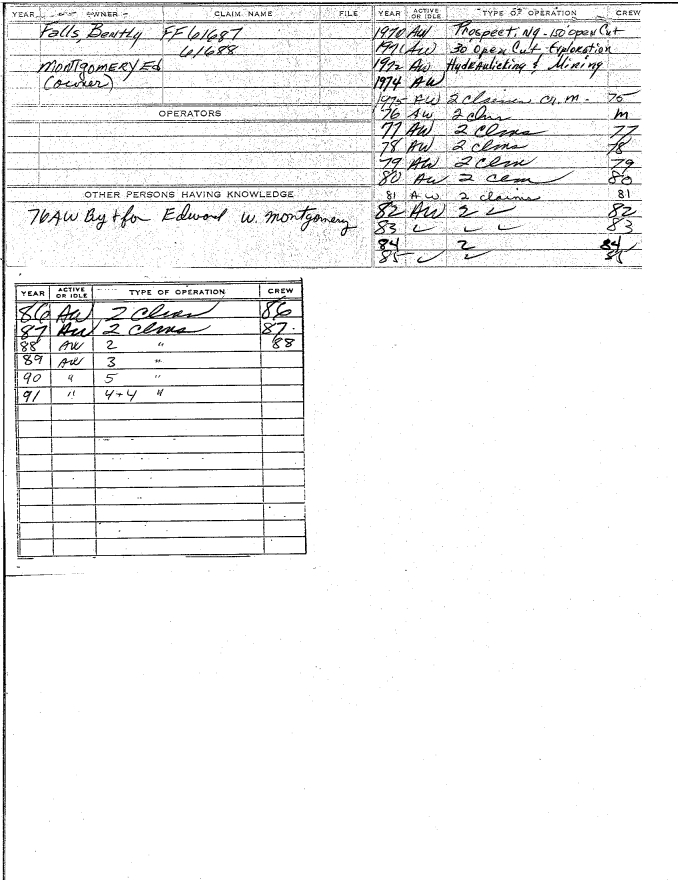 YEAR OWNER CLAIM NAME FILE
Falls, Bently FF 61687
61688
Montgomery Ed
(owner)
OPERATORS
OTHER PERSONS HAVING KNOWLEDGE
76 AW By & for Edward W. Montgomery
YEAR ACTIVE OR IDLE TYPE OF OPERATION CREW
1970 AW Prospect. Ng - 150' open Cut
1971 AW 30 Open Cut Exploration
1972 AW Hydraulicking & Mining
1974 AW
1975 AW 2 claims 75
76 AW 2 clms m
77 AW 2 clms 77
78 AW 2 clms 78
79 AW 2 clm 79
80 AW 2 clm 80
81 AW 2 claims 81
82 AW 2 ✓ 82
83 ✓ ✓ ✓ 83
84 2 84
85 ✓ ✓ 85
YEAR ACTIVE OR IDLE TYPE OF OPERATION CREW
86 AW 2 clms 86
87 AW 2 clms 87.
88 AW 2 " 88
89 AW 3 "
90 " 5 "
91 " 4+4 "